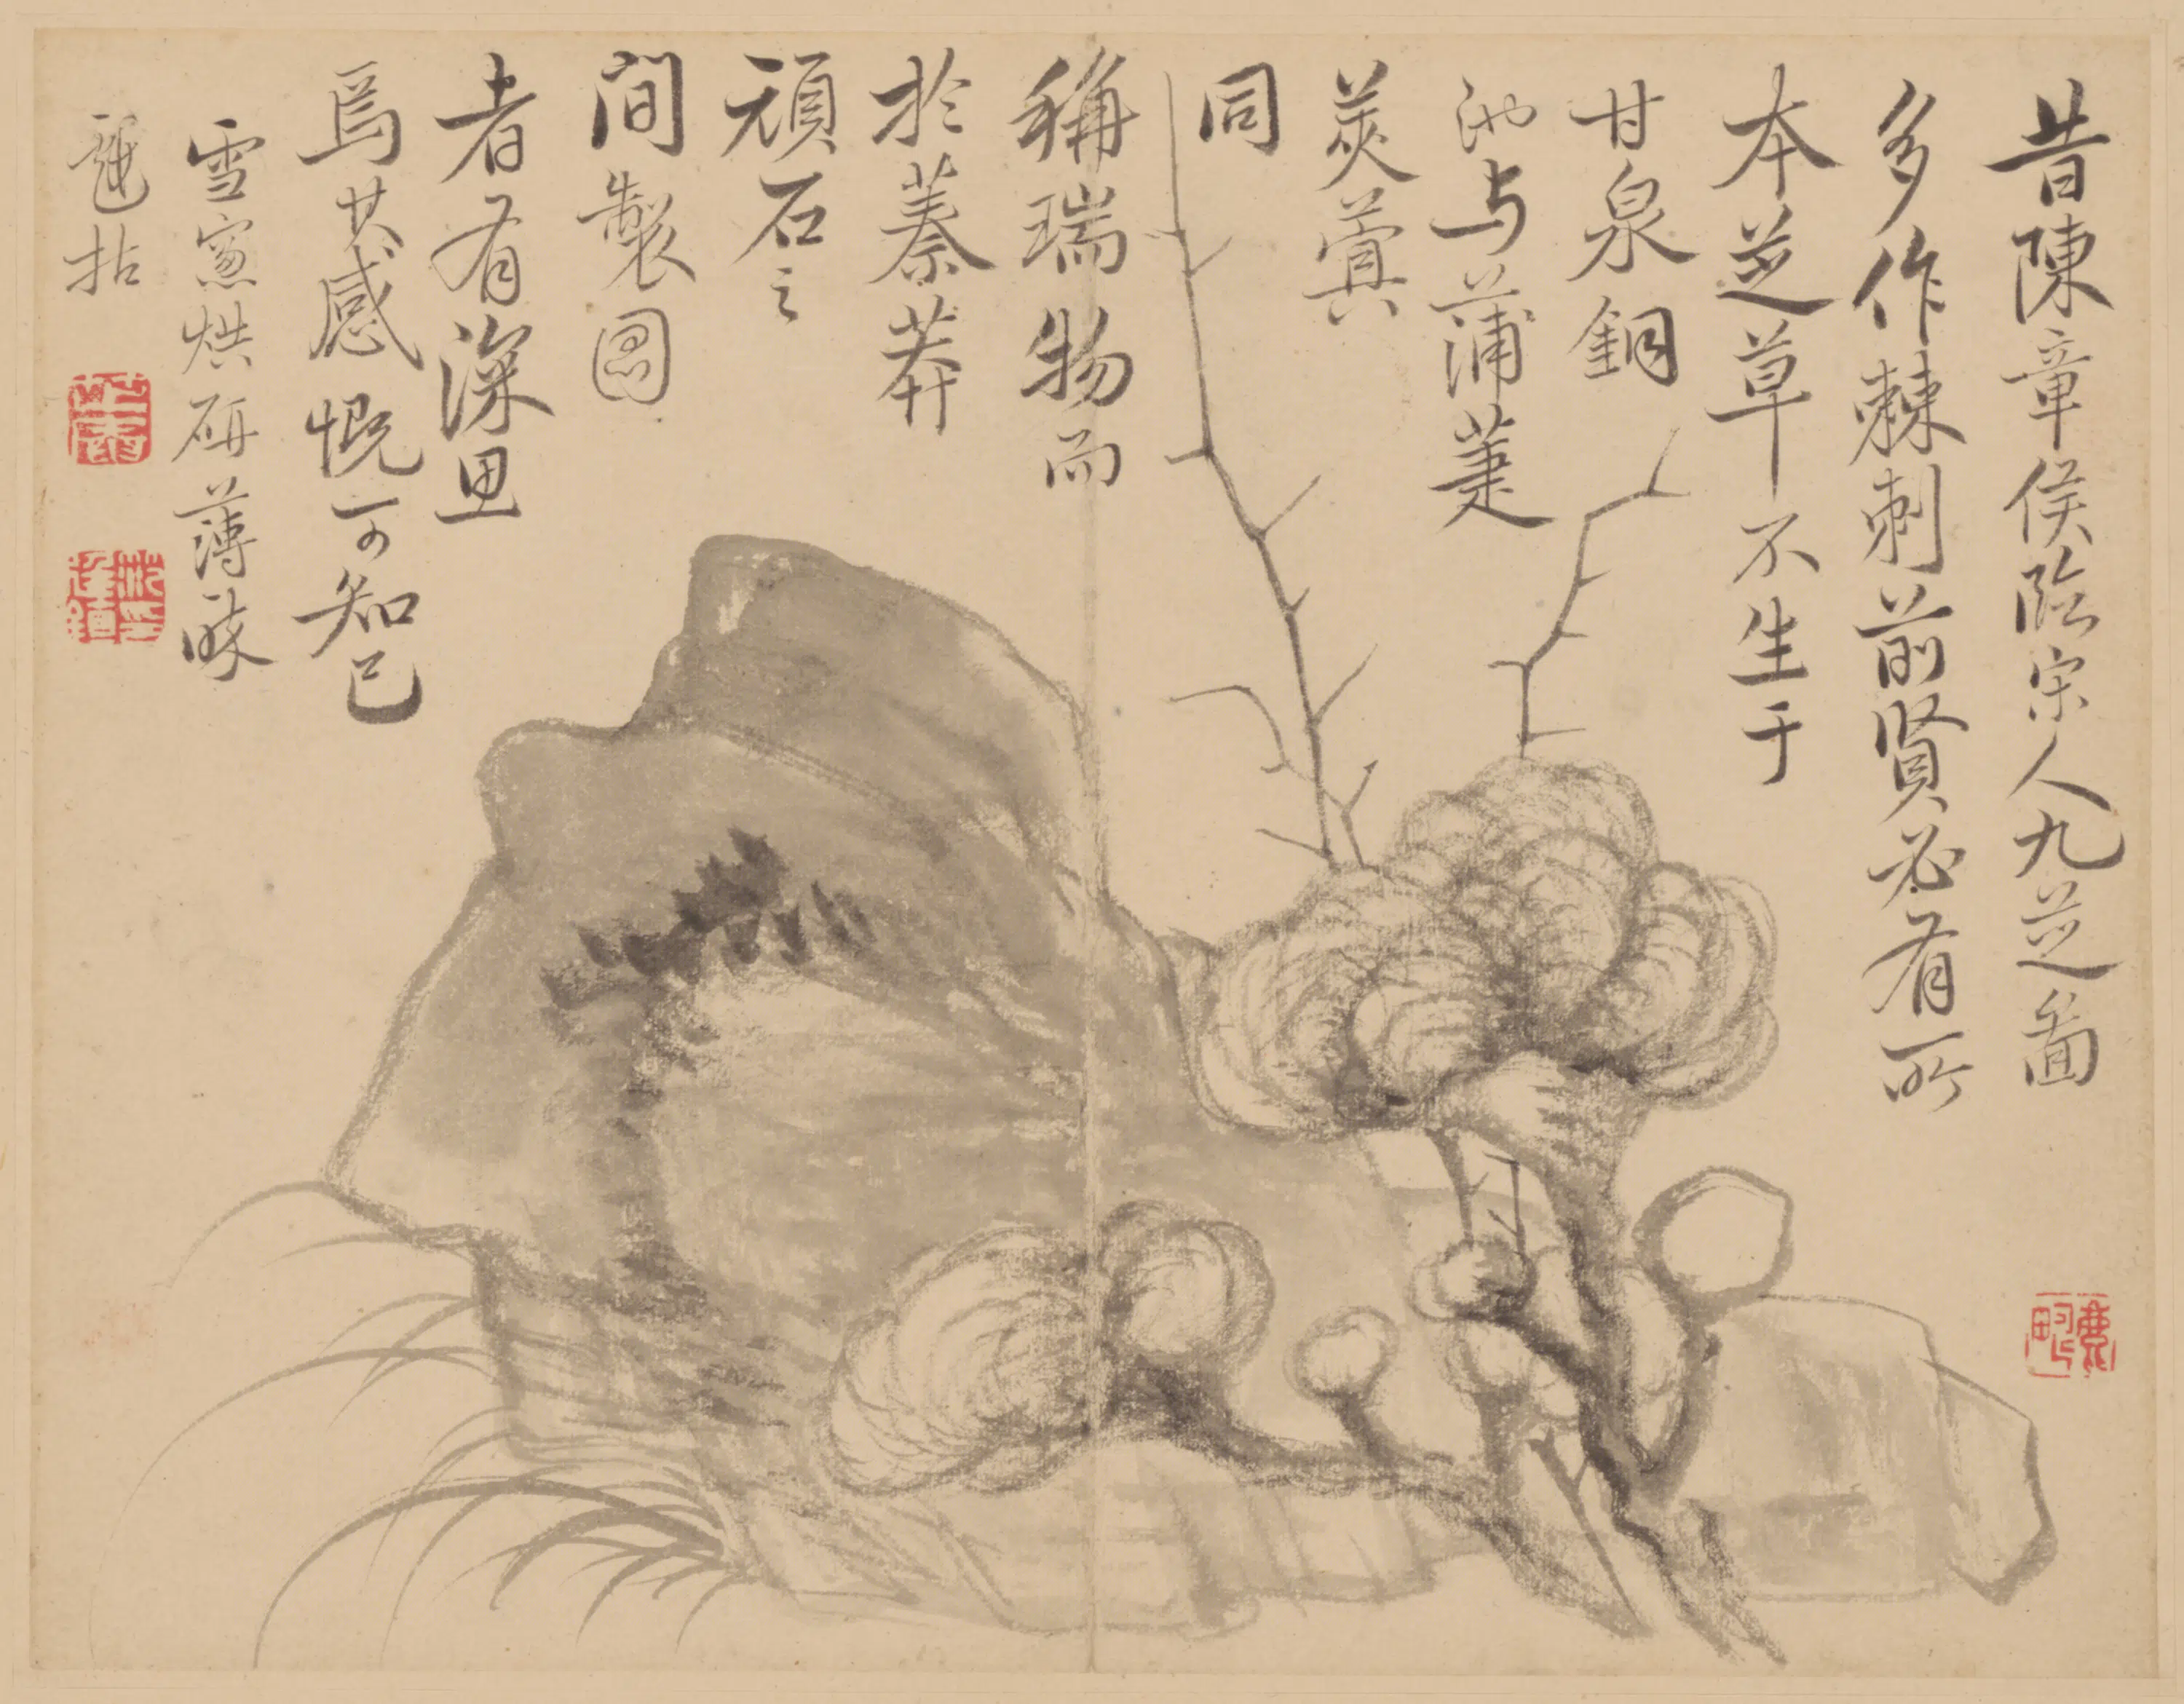 昔陳章侯臨宋人九芝啚
多作棘刺前賢必有所
本芝草不生于
甘泉銅
池与蒲萐
蓂
同
稱瑞物而
於蓁莽
頑石之
間製圖
者有深思
焉其感慨可知已
雪窻烘研薄醉
拈